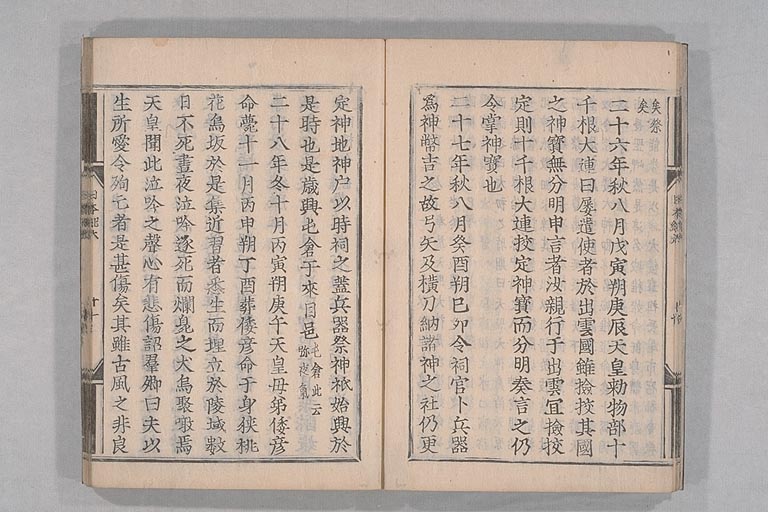 矣祭
矣
二十六年秋八月戊寅朔庚辰天皇勅物部十
千根大連曰屢遣使者於出雲國雖撿挍其國
之神寶無分明申言者汝親行于出雲冝撿挍
定則十千根大連挍定神寶而分明奏言之仍
令掌神寶也
二十七年秋八月癸酉朔己卯令祠官卜兵器
爲神幣吉之故弓矢及横刀納諸神之社仍更
定神地神户以時祠之蓋兵器祭神祇始興於
是時也是歳興屯倉于來目邑屯倉此云
弥夜氣
二十八年冬十月丙寅朔庚午天皇母弟倭彦
命薨十一月丙申朔丁酉葬倭彦命于身狹桃
花鳥坂於是集近習者悉生而埋立於陵域數
日不死晝夜泣吟遂死而爛臰之犬烏聚噉焉
天皇聞此泣吟之聲心有悲傷詔羣卿曰夫以
生所愛令殉亡者是甚傷矣其雖古風之非良